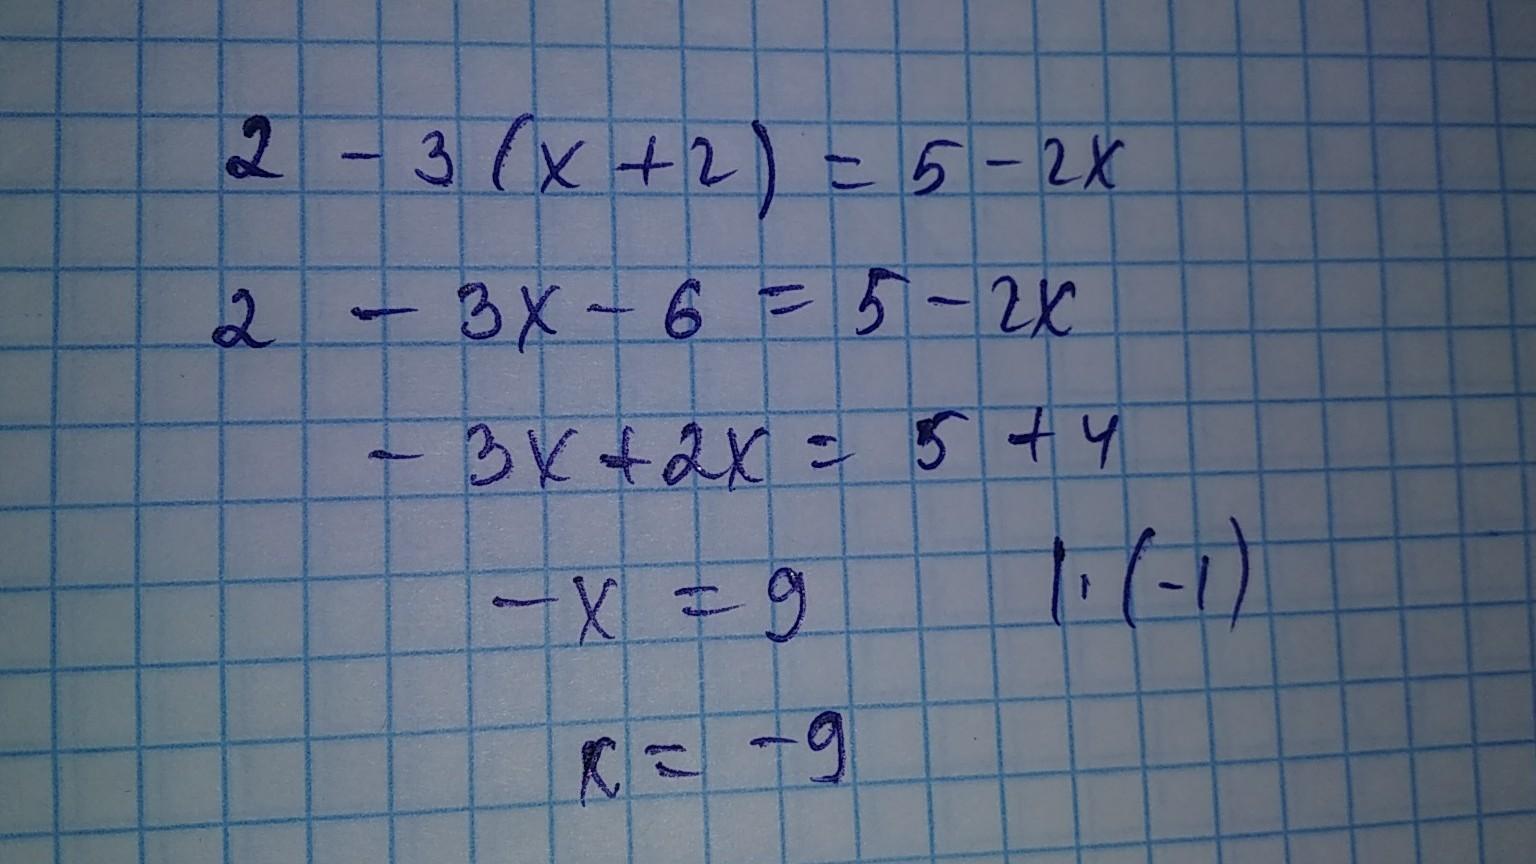 2 - 3(x+2) = 5 - 2x
2 - 3x - 6 = 5 - 2x
- 3x + 2x = 5 + 4
-x = 9 |·(-1)
x = -9